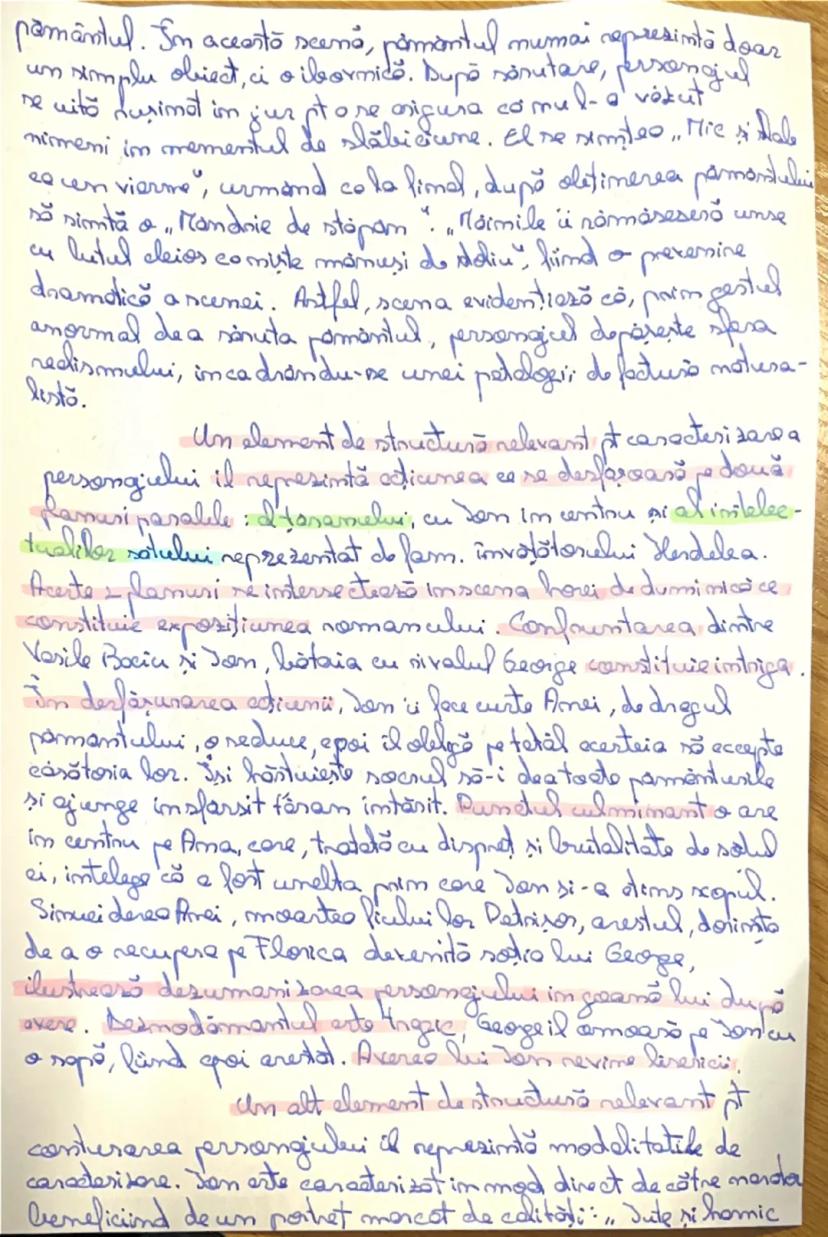 pământul. În această scenă, pământul numai reprezintă doar
un simplu obiect, ci o ibovnică. După sărutare, personajul
se uită rușinat în jur pt a se asigura că nu l-a văzut
nimeni în momentul de slăbiciune. El se simțea „Mic și slab
ca un vierme", urmând ca la final, după obținerea pământului
să simtă o „Mândrie de stăpân". „Mâinile îi rămăseseră unse
cu lutul cleios ca niște mănuși de doliu", fiind o prevenire
dramatică a scenei. Astfel, scena evidențiază că, prin gestul
anormal de a săruta pământul, personajul depășește sfera
realismului, încadrându-se unei patologii de factură natura-
listă.
Un element de structură relevant pt caracterizarea
personajului îl reprezintă acțiunea ce se desfășoară pe două
planuri paralele: al țăranului, cu Ion în centru și al intelec-
tualilor satului reprezentat de fam. învățătorului Herdelea.
Aceste 2 planuri se intersectează în scena horei de duminică ce
constituie expozițiunea romanului. Confruntarea dintre
Vasile Baciu și Ion, bătaia cu rivalul George constituie intriga.
În desfășurarea acțiunii, Ion îi face curte Anei, de dragul
pământului, o seduce, apoi îl obligă pe tatăl acesteia să accepte
căsătoria lor. Își hărțuiește socrul să-i dea toate pământurile
și ajunge în sfârșit țăran întărit. Punctul culminant o are
în centru pe Ana, care, tratată cu dispreț și brutalitate de soțul
ei, intelege că a fost unelta prin care Ion și-a atins scopul.
Sinuciderea Anei, moartea fiului lor Petrișor, arestul, dorința
de a o recupera pe Florica devenită soția lui George,
ilustrează dezumanizarea personajului in goană lui după
avere. Deznodământul este tragic, George îl omoară pe Ion cu
o sapă, fiind apoi arestat. Averea lui Ion revine bisericii.
Un alt element de structură relevant pt
conturarea personajului îl reprezintă modalitatile de
caracterizare. Ion este caracterizat în mod direct de către narator
beneficiind de un portret marcat de calități: „Iute și harnic